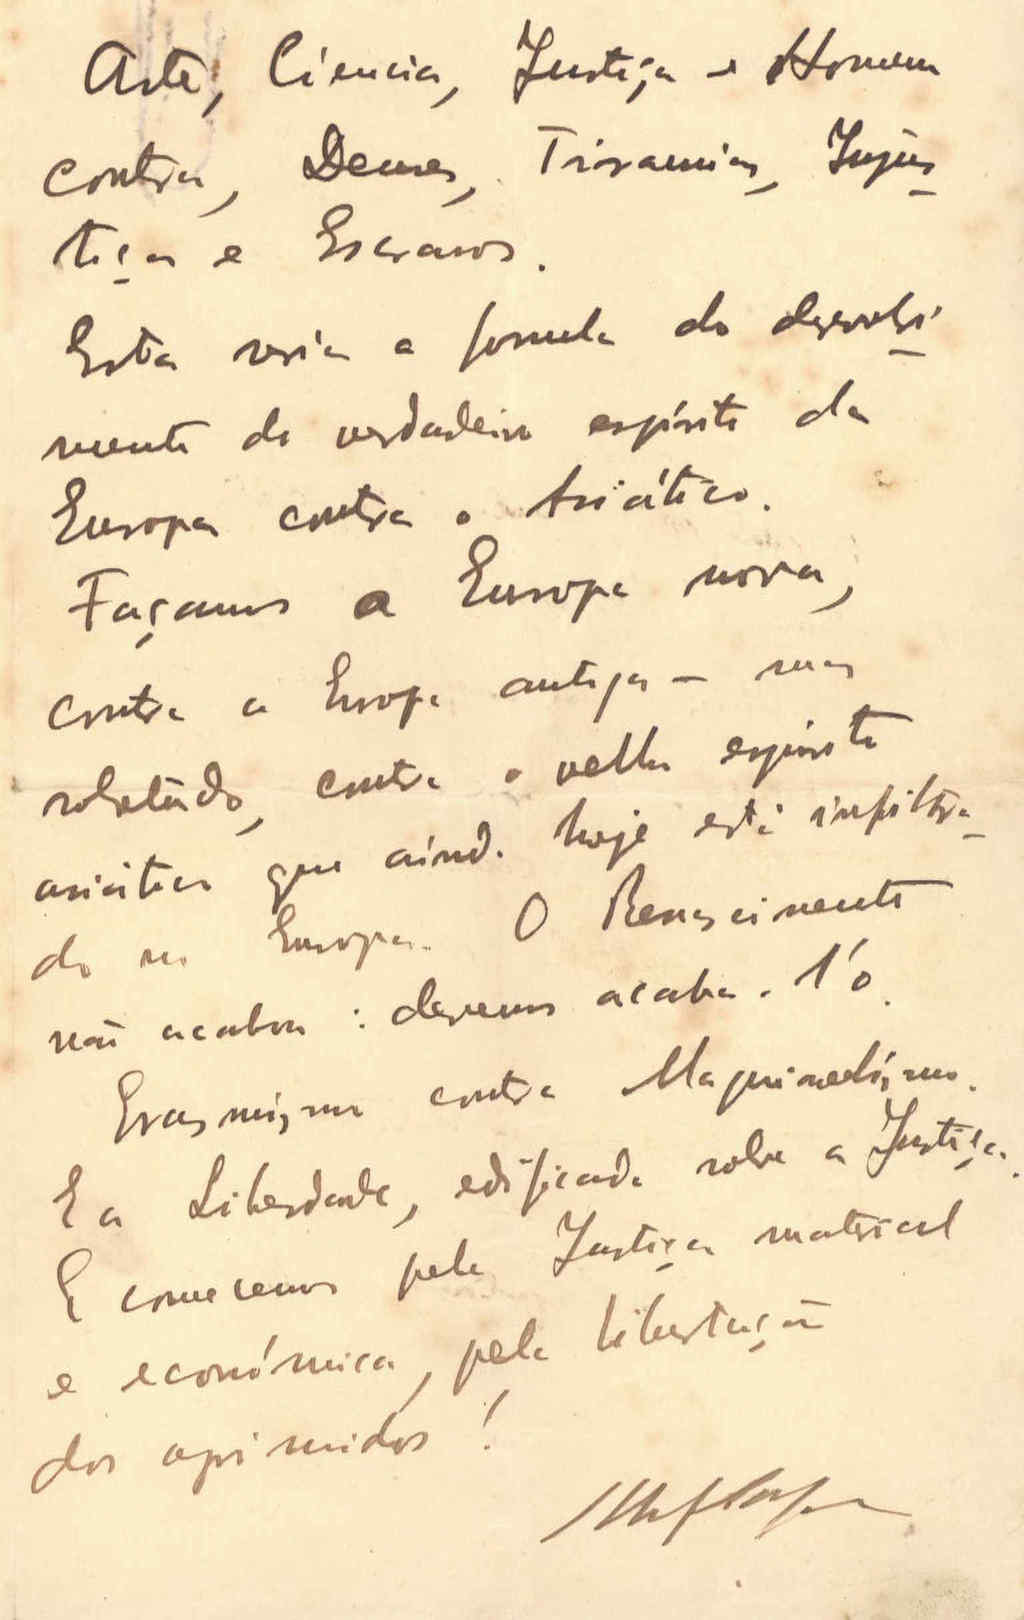 Arte, Ciencia, Justiça e Homem
contra, Deuses, Tirania, Injus-
tiça e Escravos.
Esta seria a formula do desenvolvi-
mento do verdadeiro espírito da
Europa contra o Asiático.
Façamos a Europa nova,
contra a Europa antiga - mas
sobretudo, contra o velho espirito
asiático que ainda hoje está infiltra-
do na Europa. O Renascimento
não acabou: devemos acabal-o.
Erasmismo contra Maquiavelismo.
E a Liberdade, edificada sobre a Justiça.
E comecemos pela Justiça material
e económica, pela libertação
dos oprimidos!